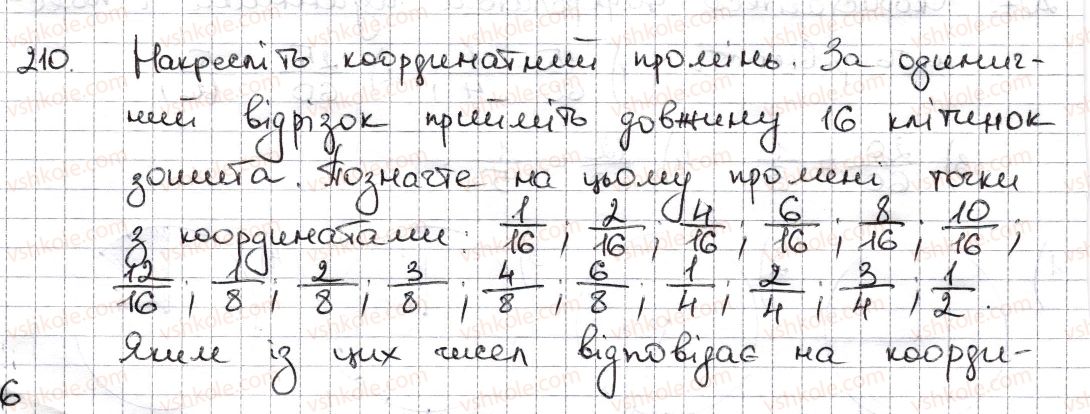 210. Накресліть координатний промінь. За одинич-
ний відрізок прийміть довжину 16 клітинок
зошита. Позначте на цьому промені точки
з координатами: 1/16; 2/16; 4/16; 6/16; 8/16; 10/16;
12/16; 1/8; 2/8; 3/8; 4/8; 6/8; 1/4; 2/4; 3/4; 1/2.
Яким із цих чисел відповідає на коорди-
6